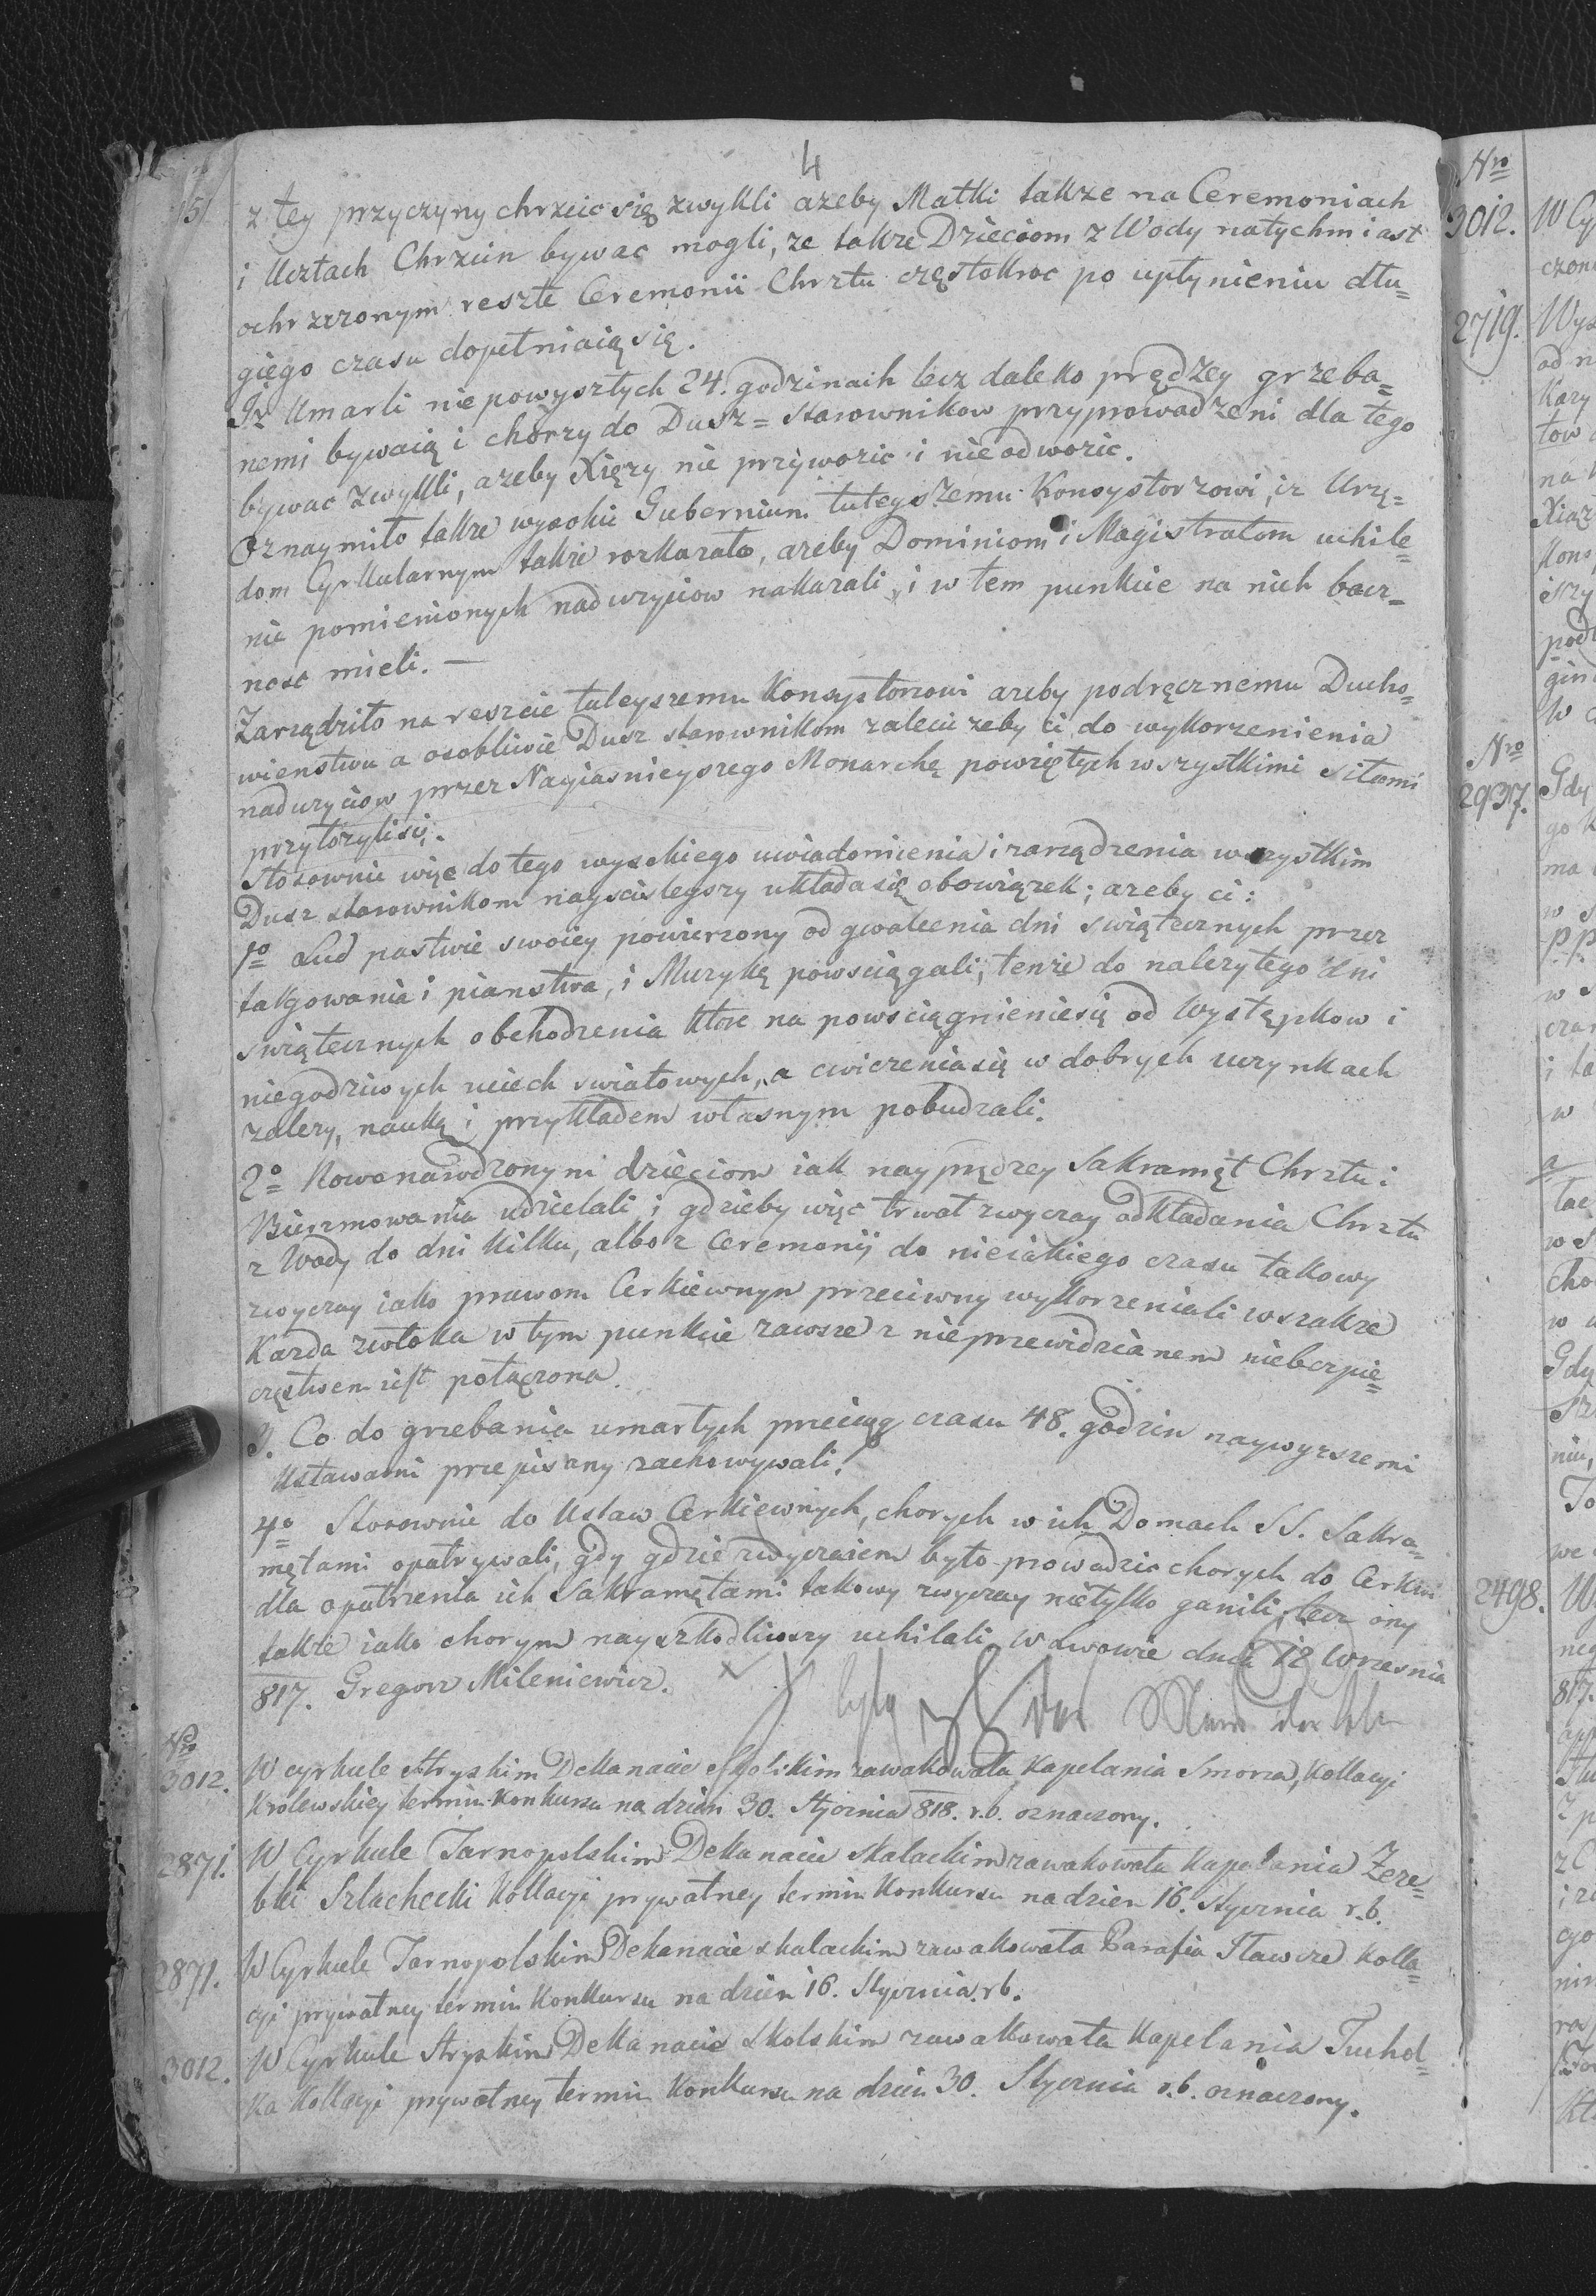 4
151
z tey przyczyny chrzcic się zwykli azeby Matki takze na Ceremoniach
i Ucztach Chrzcin bywac mogli, ze takze Dzieciom z Wody natychmiast
ochrzczonym reszte Ceremonii Chrztu częstokroc po upłynieniu dłu=
giego czasu dopełniaią się.
Iz Umarli niepowyszłych 24. godzinach lecz daleko prędzey grzeba=
nemi bywaią i chorzy do Dusz=starownikow przyprowadzeni dla tego
bywac zwykli, azeby Xięzy nie przywozic i nieodwozic.
Oznaymiło takze wysokie Gubernium tuteyszemu Konsystorzowi, iz Urzę=
dom Cyrkularnym takze rozkazało, azeby Dominiom i Magistratom uchile=
nie pomienionych naduzyciow nakazali, i w tem punkcie na nich bacz=
nosc mieli. —
Zarządziło na reszcie tuteyszemu Konsystorzowi azeby podręcznemu Ducho=
wienstwu a osobliwie Dusz starownikom zalecic zeby ci do wykorzenienia
naduzyciow przez Nayiasnieyszego Monarchę powziętych wszystkimi siłami
przyłozylisię.
Stosownie więc do tego wysokiego uwiadomienia i zarządzenia wszystkim
Dusz starownikom nayscislegszy układa się obowiązek; azeby ci:
1o Lud pastwie swoiey powierzony od gwałcenia dni swiątecznych przez
targowania i pianstwa, i Muzykę powsciągali, tenze do nalezytego dni
swiątecznych obchodzenia ktore na powsciągnieniesię od Występkow i
niegodziwych uciech swiatowych, a cwiczeniasię w dobrych uczynkach
zalezy, nauką i przykładem własnym pobudzali.
2o Nowonarodzonymi dzieciom iak nayprędzey Sakramęt Chrztu i
Bierzmowania udzielali, i gdzieby więc trwał zwyczay odkładania Chrztu
z Wody do dni kilku, albo z Ceremonij do nieiakiego czasu takowy
zwyczay iako prawom Cerkiewnym przeciwny wykorzeniali wszakze
Kazda zwłoka w tym punkcie zawsze z nieprzewidzianem niebezpie=
częstwem iest połączona.
3. Co do grzebania umarłych przeciąg czasu 48. godzin naywyzszemi
Ustawami przepisany zachowywali.
4o Stosownie do Ustaw Cerkiewnych, chorych w ich Domach SS. Sakra=
mętami opatrywali, gdy gdzie zwyczaiem było prowadzic chorych do Cerkwi
dla opatrzenia ich Sakramętami takowy zwyczay nietylko ganili, lecz ony
takze iako chorym nayszkodliwszy uchilali. W Lwowie dnia 12 Wrzesnia
817. Gregorz Mileniewicz.
Nro
3012. W cyrkule Stryskim Dekanacie Skolskim zawakowała Kapelania Smorza, Kollacyi
Krolewskiey termin Konkursu na dzien 30. Stycznia 818. r.b. oznaczony.
2871. W Cyrkule Tarnopolskim Dekanacie Skalackim zawakowała Kapelania Zere=
bki Szlachecki Kollacyi prywatney termin Konkursu na dzien 16. Stycznia r.b.
2871. W Cyrkule Tarnopolskim Dekanacie skalackim zawakowała Parafia Iławcze Kolla=
cyi prywatney termin Konkursu na dzien 16. Stycznia. r.b.
3012. W Cyrkule Stryskim Dekanacie Skolskim zawakowała Kapelania Tuchol=
ka Kollacyi prywatney termin Konkursu na dzien 30. Stycznia r.b. oznaczony.
Nro
3012. W Cy
czon
2719. Wys
od n
Kazy
na
Xiąz
Kons
pod
Nro
2937. Gdy
go k
ma
pp.
i ta
w
a
w s
cho
Gdy
To
2498. W
817.
2 p
z C
go